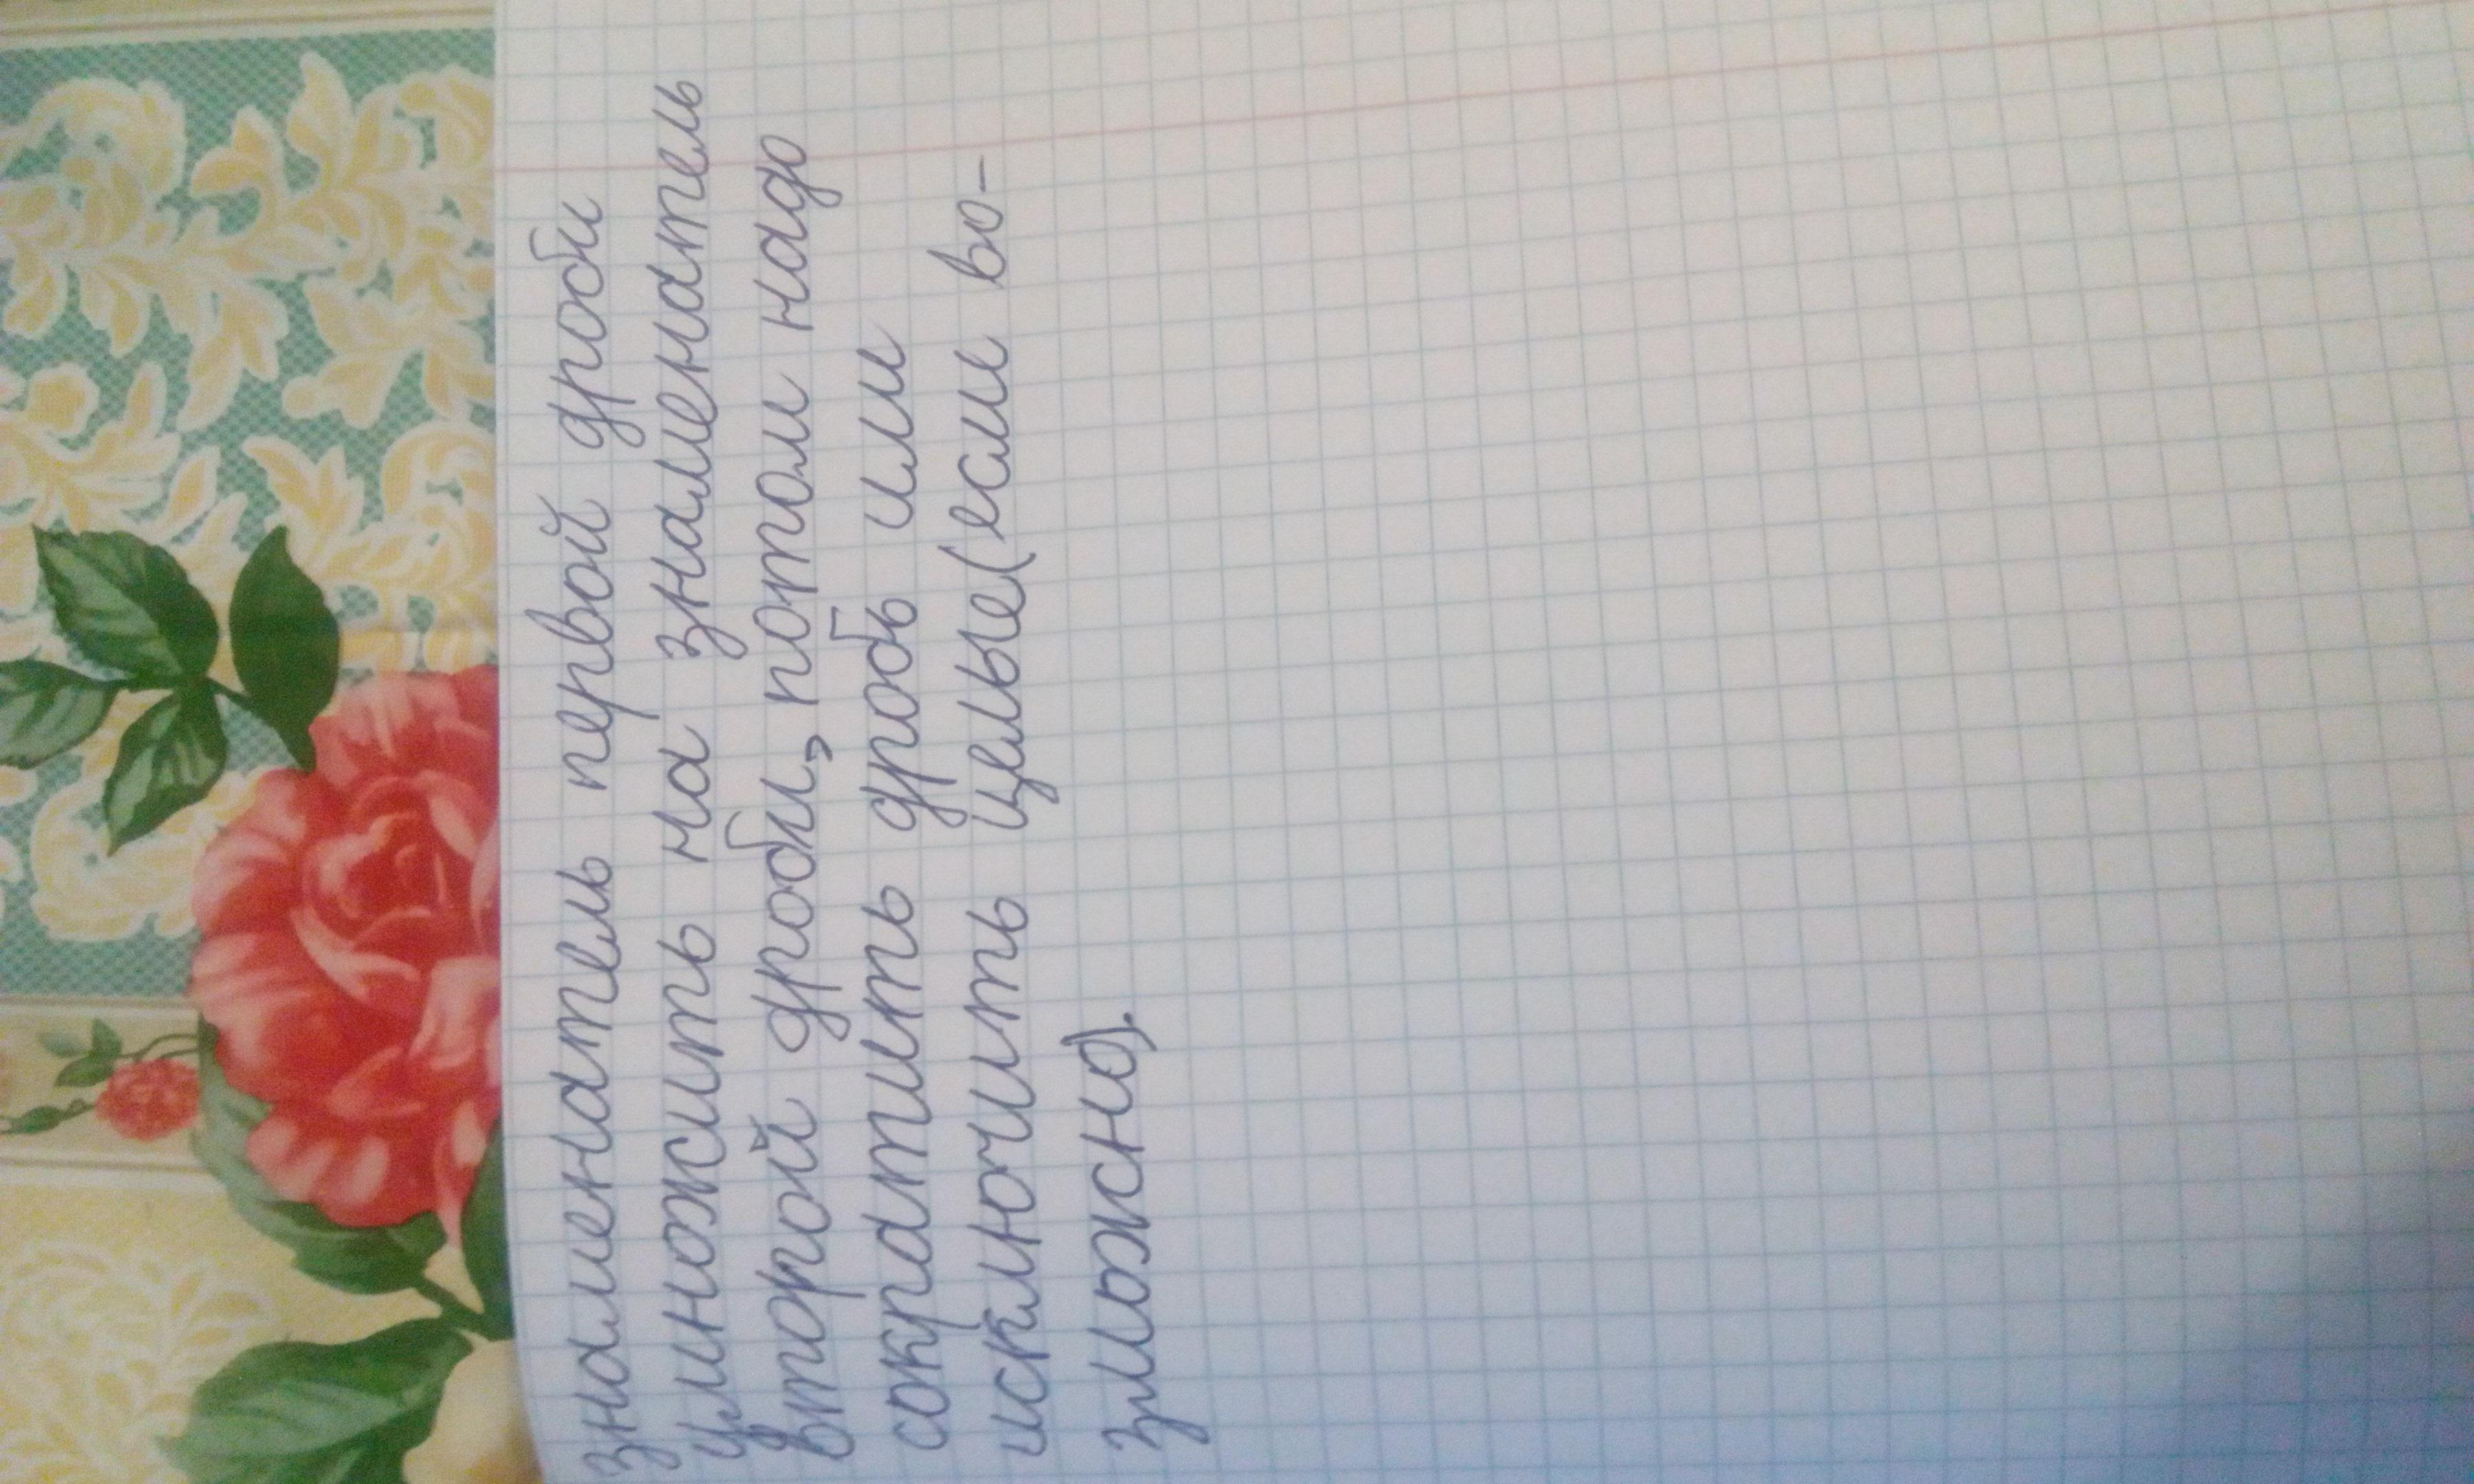 знаменатель первой дроби
умножить на знаменатель
второй дроби, потом надо
сократить дробь или
исключить целые(если во-
зможно).